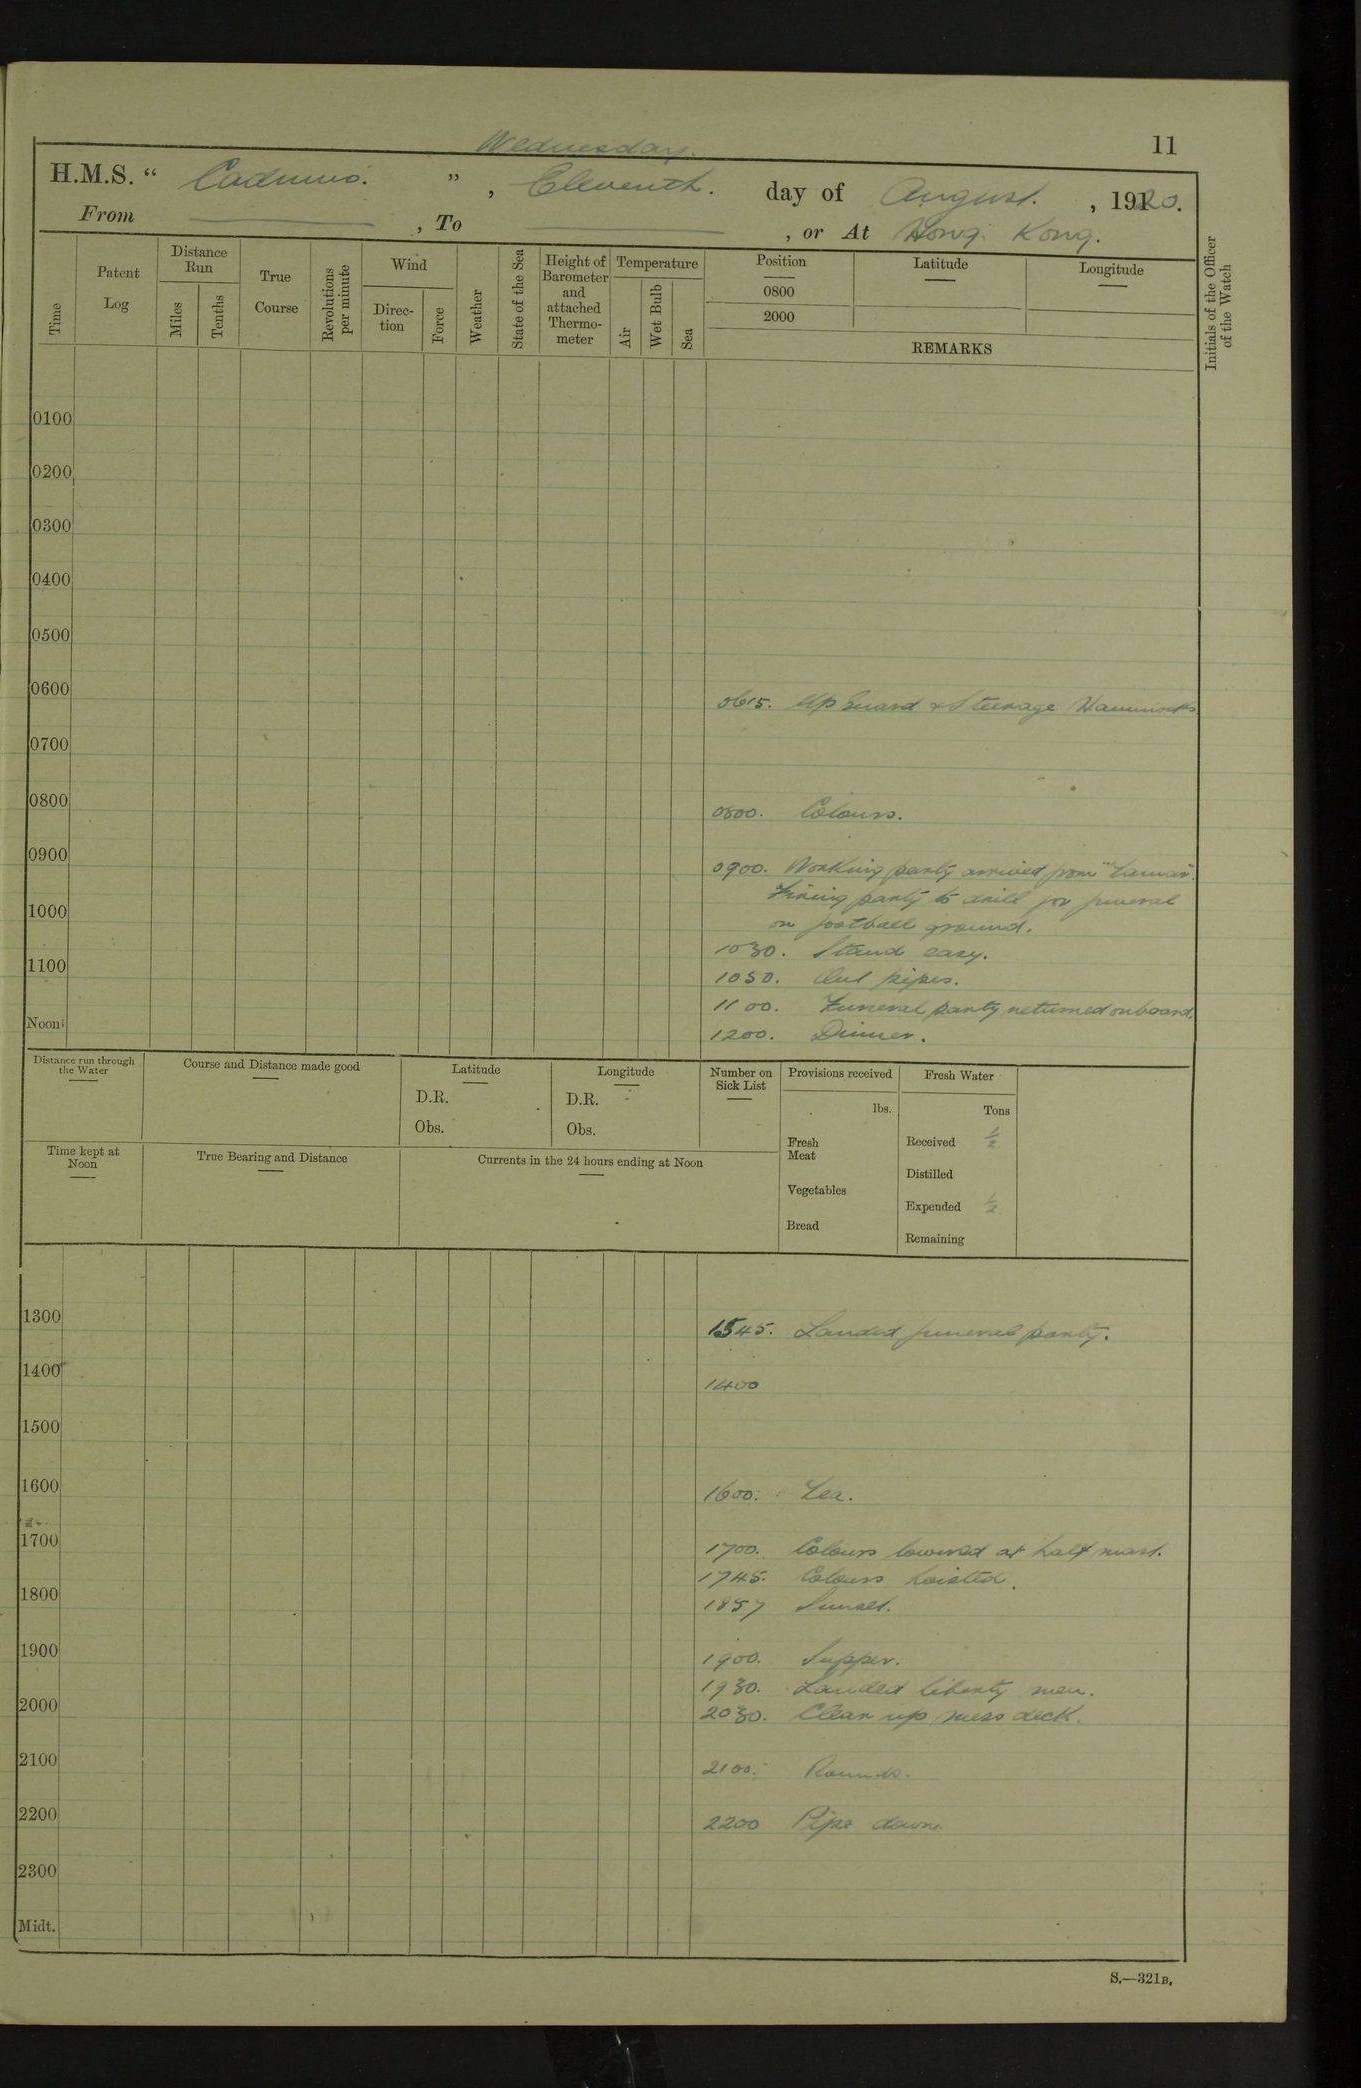 11
Wednesday.
H.M.S. “ Cadmus. ” , Eleventh. day of August. , 1920.
From , To , or At Hong Kong.
Time
Patent Log
Distance Run
Miles
Tenths
True Course
Revolutions per minute
Wind
Direction
Force
Weather
State of the Sea
Height of Barometer and attached Thermometer
Temperature
Air
Wet Bulb
Sea
Position
0800
2000
Latitude
Longitude
REMARKS
Initials of the Officer of the Watch
0100
0200
0300
0400
0500
0600
0615. Up Guard & Steerage Hammocks
0700
0800
0800. Colours.
0900
0900. Working party arrived from "Tamar".
Firing party to drill for funeral
1000
on football ground.
1030. Stand easy.
1100
1050. Out pipes.
1100. Funeral party returned onboard.
Noon
1200. Dinner.
Distance run through the Water
Course and Distance made good
Latitude
D.R.
Obs.
Longitude
D.R.
Obs.
Number on Sick List
Provisions received
lbs.
Fresh Meat
Vegetables
Bread
Fresh Water
Tons
Received ½
Distilled
Expended ½
Remaining
Time kept at Noon
True Bearing and Distance
Currents in the 24 hours ending at Noon
1300
1545. Landed funeral party.
1400
1400
1500
1600
1600. Tea.
1700
1700. Colours lowered at half mast.
1745. Colours hoisted.
1800
1857 Sunset.
1900
1900. Supper.
1930. Landed liberty men.
2000
2030. Clear up mess deck.
2100
2100. Rounds.
2200
2200 Pipe down.
2300
Midt.
S.—321B.